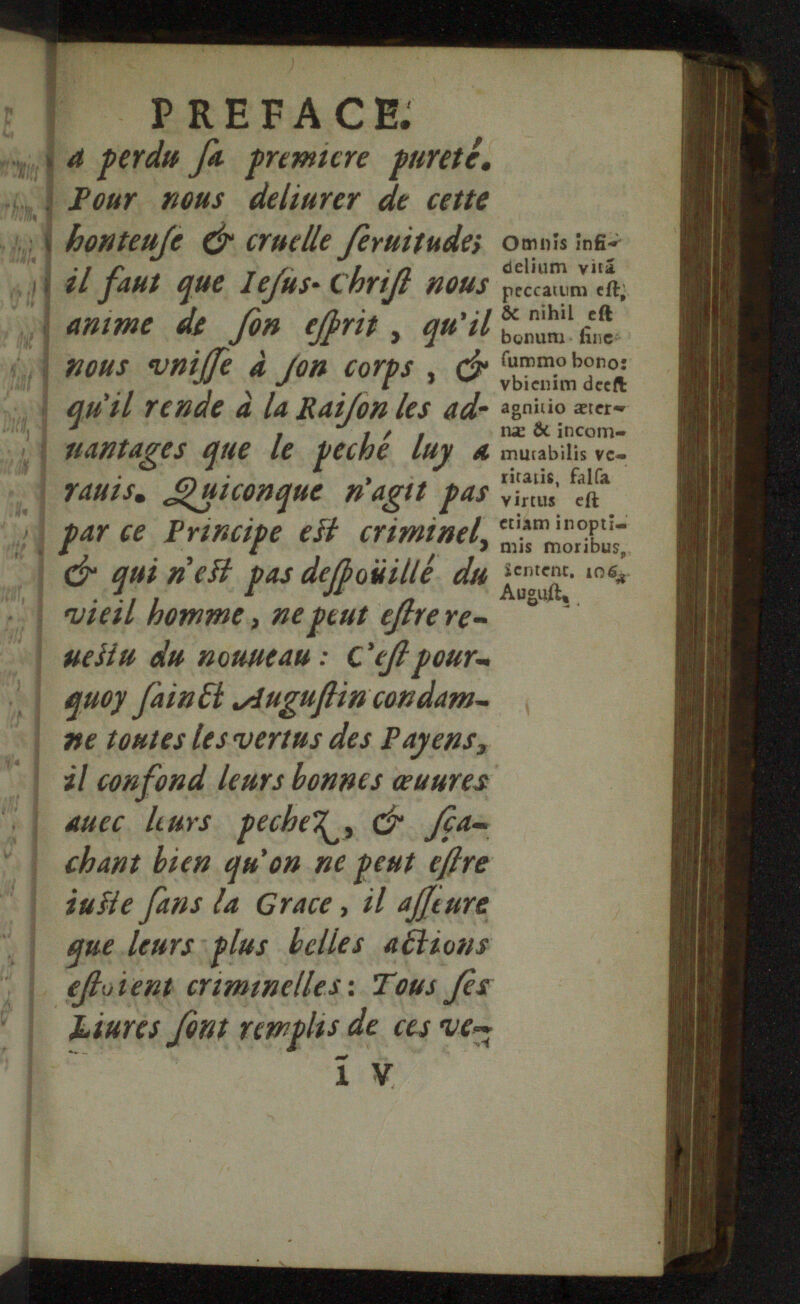 PREFACE.
a perdu ſa premiere pureté.
Pour nous deliurer de cette
honteuſe & cruelle ſeruitude;
il faut que Ieſus-Chriſt nous
anime de ſon eſprit, qu'il
nous vniſſe à ſon corps, &
qu'il rende à la Raiſon les ad-
uantages que le peché luy a
rauis. Quiconque n'agit pas
par ce Principe eſt criminel,
& qui n'eſt pas deſpoüillé du
vieil homme, ne peut eſtre re-
ueſtu du nouueau: C'eſt pour-
quoy ſainct Auguſtin condam-
ne toutes les vertus des Payens,
il confond leurs bonnes œuures
auec leurs pechez, & ſça-
chant bien qu'on ne peut eſtre
iuſte ſans la Grace, il aſſeure
que leurs plus belles actions
eſtoient criminelles: Tous ſes
Liures ſont remplis de ces ve-
ĩ v
Omnis infi-
delium vitâ
peccatum eſt,
& nihil eſt
bonum ſine
ſummo bono:
vbi enim deeſt
agnitio æter-
næ & incom-
mutabilis ve-
ritatis, falſa
virtus eſt
etiam in opti-
mis moribus,
ſentent. 106.
Auguſt.